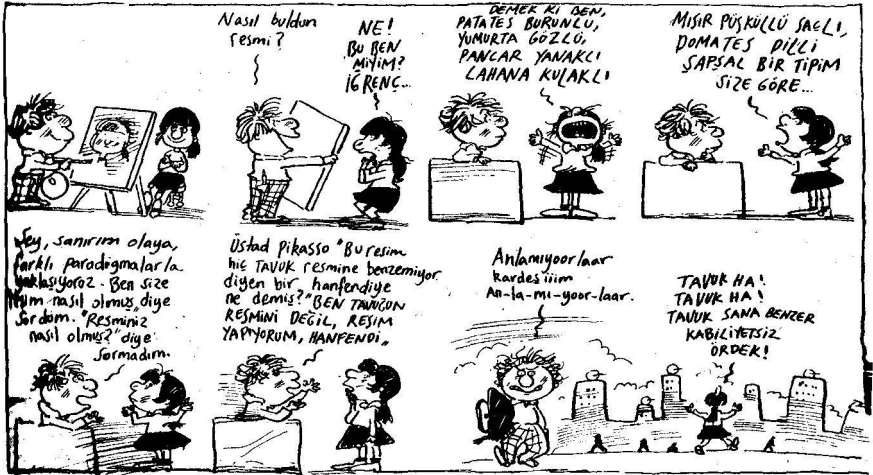 Nasıl buldun
resmi?
NE!
BU BEN
MİYİM?
İĞRENÇ...
DEMEK Kİ BEN,
PATATES BURUNLU,
YUMURTA GÖZLÜ,
PANCAR YANAKLI
LAHANA KULAKLI
MISIR PÜSKÜLLÜ SAÇLI,
DOMATES DİLLİ
ŞAPŞAL BİR TİPİM
SİZE GÖRE...
Şey, sanırım olaya,
farklı paradigmalarla
yaklaşıyoruz. Ben size
nasıl olmuş, diye
sordum. "Resminiz
nasıl olmuş?" diye
sormadım.
Üstad Pikasso "Bu resim
hiç TAVUK resmine benzemiyor
diyen bir hanfendiye
ne demiş?" BEN TAVUĞUN
RESMİNİ DEĞİL, RESİM
YAPIYORUM, HANFENDİ"
Anlamıyoorlaar
kardeşiiim
An-la-mı-yoor-laar.
TAVUK HA!
TAVUK HA!
TAVUK SANA BENZER
KABİLİYETSİZ
ÖRDEK!